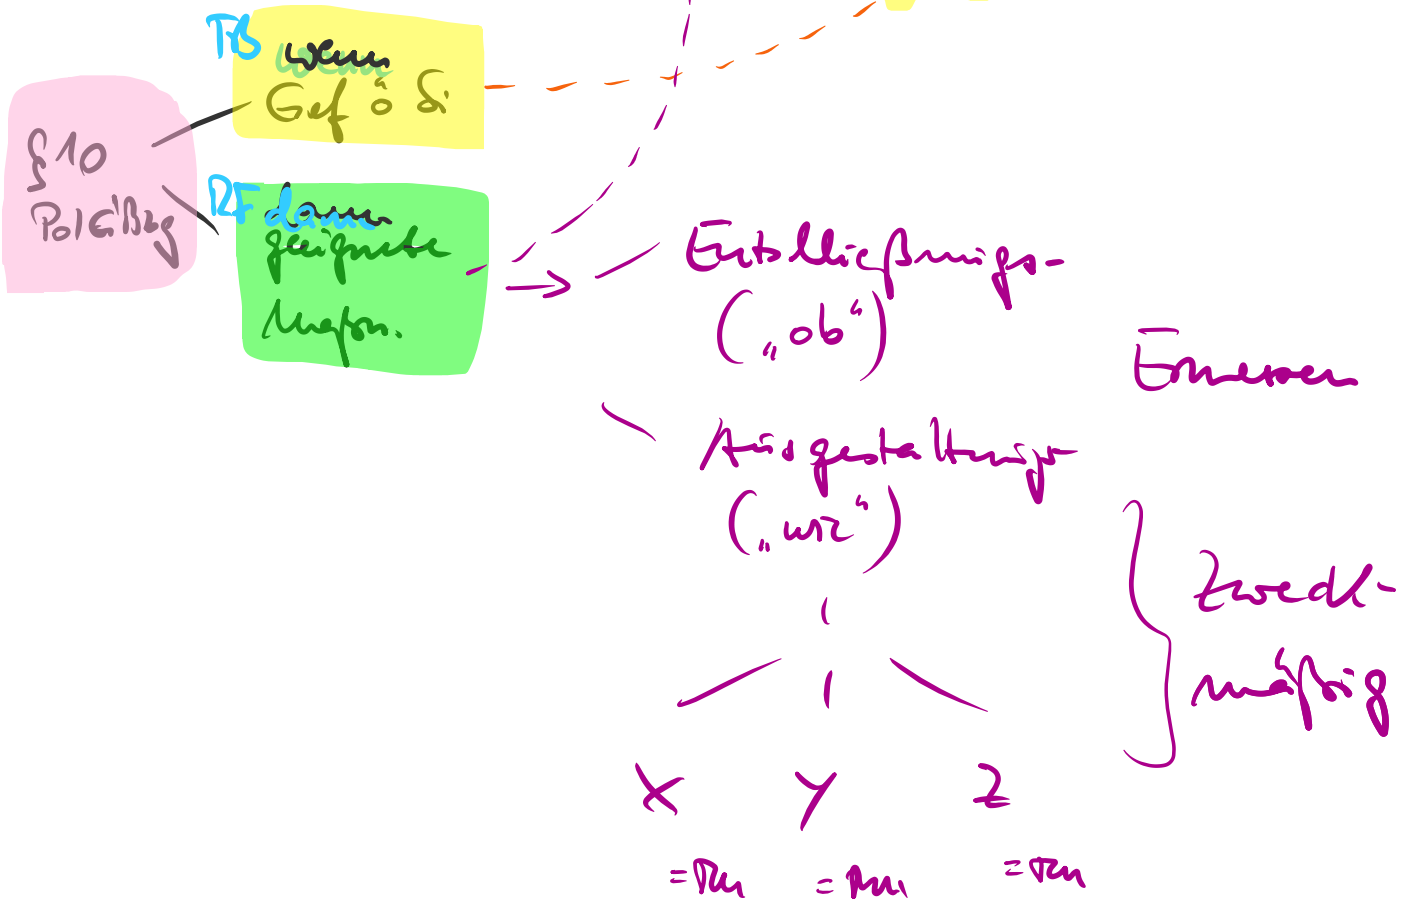 TB wenn
Gef ö Si
§ 10
PolGBbg
RF dann
geeignete
Maßn.
Entschließungs-
(„ob“)
Ermessen
Ausgestaltungs-
(„wie“)
Zweck-
mäßig
X Y Z
= Rm = Rm = Rm